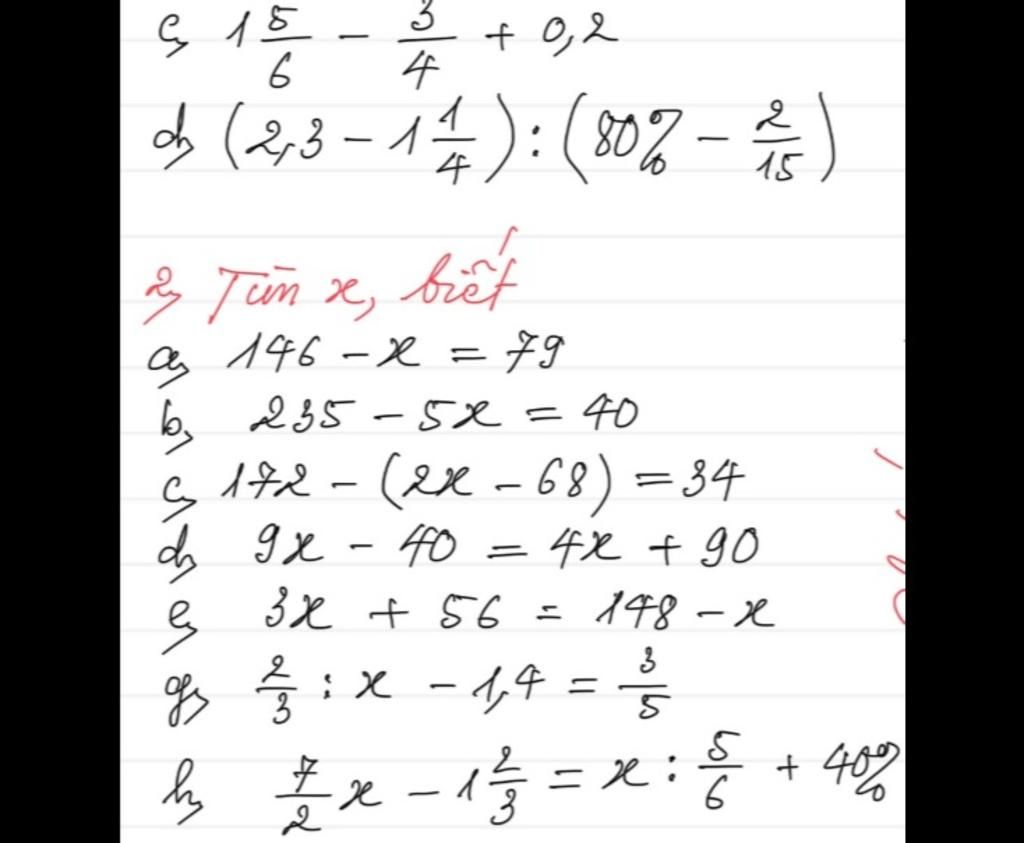 c, 1 5/6 - 3/4 + 0,2
d, (2,3 - 1 1/4) : (80% - 2/15)
2, Tìm x, biết
a, 146 - x = 79
b, 235 - 5x = 40
c, 172 - (2x - 68) = 34
d, 9x - 40 = 4x + 90
e, 3x + 56 = 148 - x
g, 2/3 : x - 1,4 = 3/5
h, 7/2 x - 1 2/3 = x : 5/6 + 40%